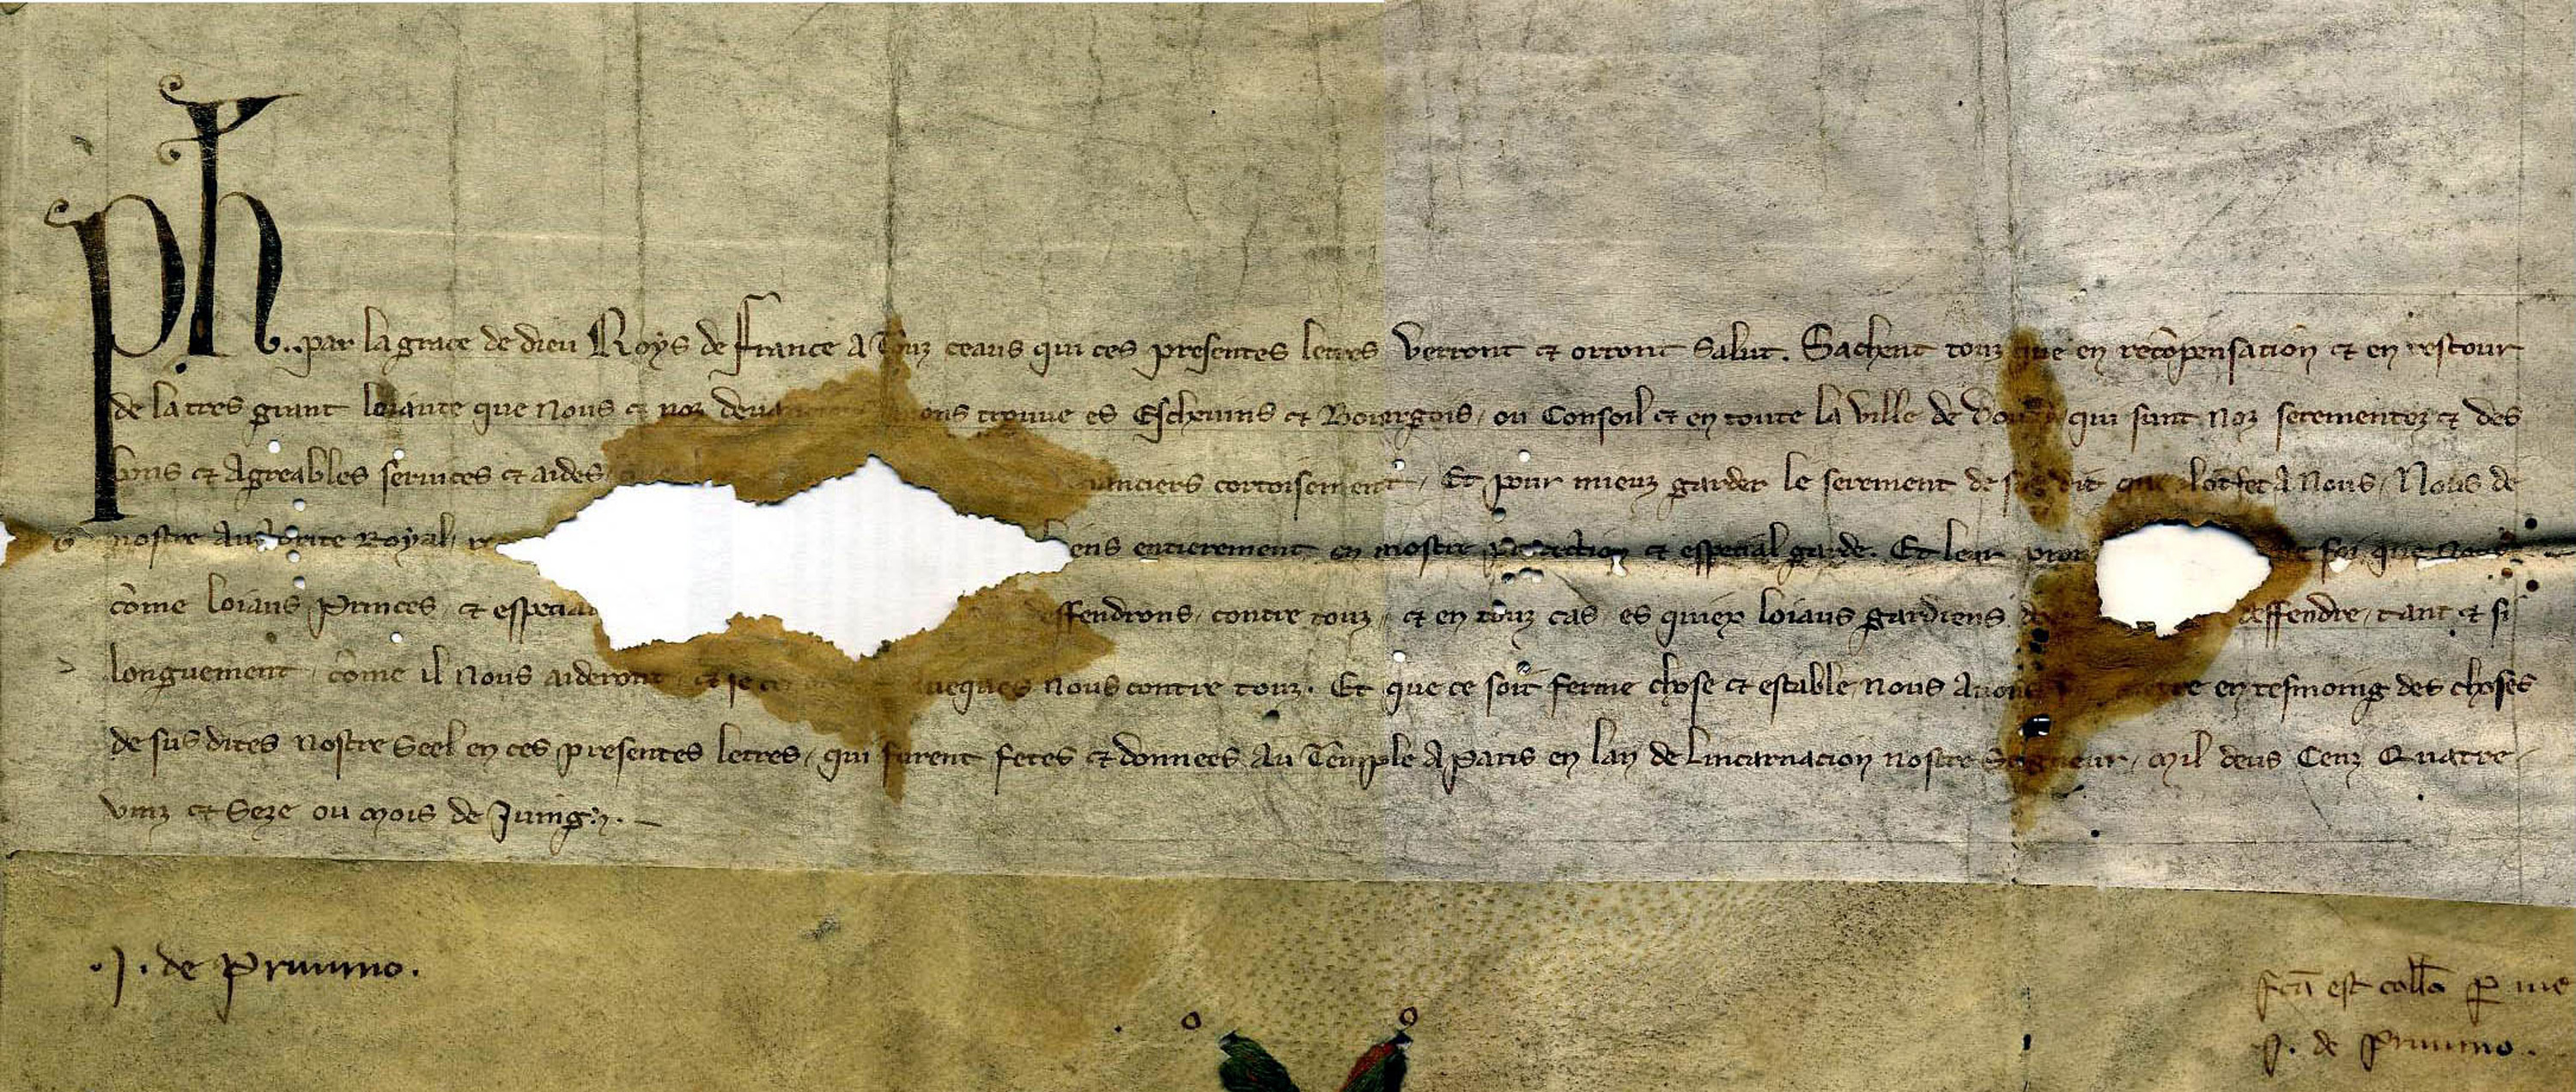 Ph .. par la grace de dieu Roys de france A Touz ceaus qui ces presentes lettres verront et orront Salut. Sachent touz que en recõpensation et en restour
de la tres grant loiaute que nous et noz ons trouue es Escheuins et Bourgois, ou Consoil et en toute la ville de qui sunt noz serementez et des
bons et Agreables seruices et aides, cortoisement, Et pour mieuz garder le serement de dit que a Nous, Nous de
nostre Auctorite Royal, entierement en nostre protection et especial garde. Et leur foi que nous
cõme loiaus Princes, et effendrons, contre touz, et en touz cas es quiex loiaus gardiens deffendre, tant et si
longuement, cõme il nous aideront ueques nous contre touz. Et que ce soit ferme chose et estable, nous Auons en tesmoing des choses
de sus dites nostre Seel en ces presentes lettres, qui furent fetes et donnees Au Temple A Paris en lan de Lincarnacion nostre Seigneur, Mil deus Cenz Quatre
vinz et Seze ou Mois de Juing.
.J. de Pruuino.
fcã est collõ p me
J. de Pruuino.